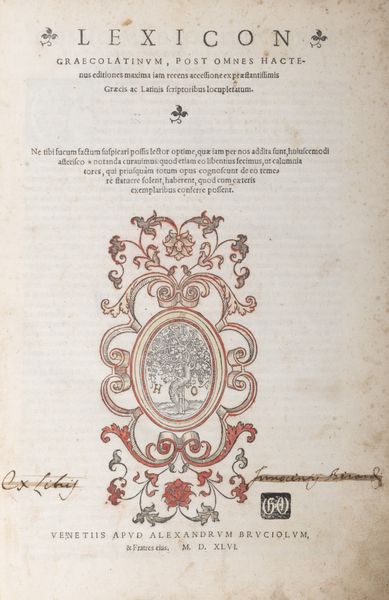 LEXICON
GRAECOLATINVM, POST OMNES HACTE-
nus editiones maxima iam recens accessione ex præstantissimis
Græcis ac Latinis scriptoribus locupletatum.
Ne tibi fucum factum suspicari possis lector optime, quæ iam per nos addita sunt, huiuscemodi
asterisco * notanda curauimus: quod etiam eo libentius fecimus, ut calumnia
tores, qui priusquàm totum opus cognoscunt de eo teme-
rè statuere solent, haberent, quod cum cæteris
exemplaribus conferre possent.
H O
ex Libris
VENETIIS APVD ALEXANDRVM BRVCIOLVM,
& Fratres eius. M. D. XLVI.